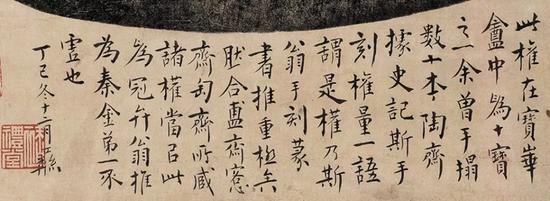 此權在寶華
盦中為十寶
之一余曾手搨
數十本陶齋
據史記斯手
刻權量一語
謂是權乃斯
翁手刻篆
書推重極矣
肰合盙齋愙
齋匋齋所藏
諸權當㠯此
為冠弁翁推
為秦金第一不
虛也
丁巳冬十二月